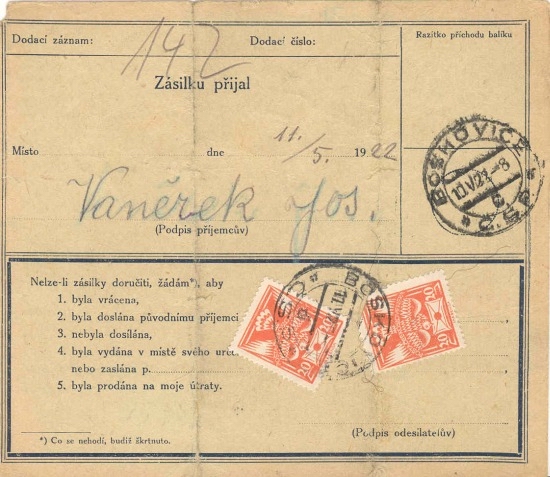 Dodací záznam: 142 Dodací číslo: Razítko příchodu balíku
Zásilku přijal
Místo dne 11./5. 1922
Vaněrek Jos.
(Podpis příjemcův)
BOSKOVICE
ČSR
Nelze-li zásilky doručiti, žádám*), aby
1. byla vrácena,
2. byla doslána původnímu příjemci
3. nebyla dosílána,
4. byla vydána v místě svého urče
nebo zaslána p.
5. byla prodána na moje útraty.
BOSKO
20 20
20 20
*) Co se nehodí, budiž škrtnuto.
(Podpis odesilatelův)